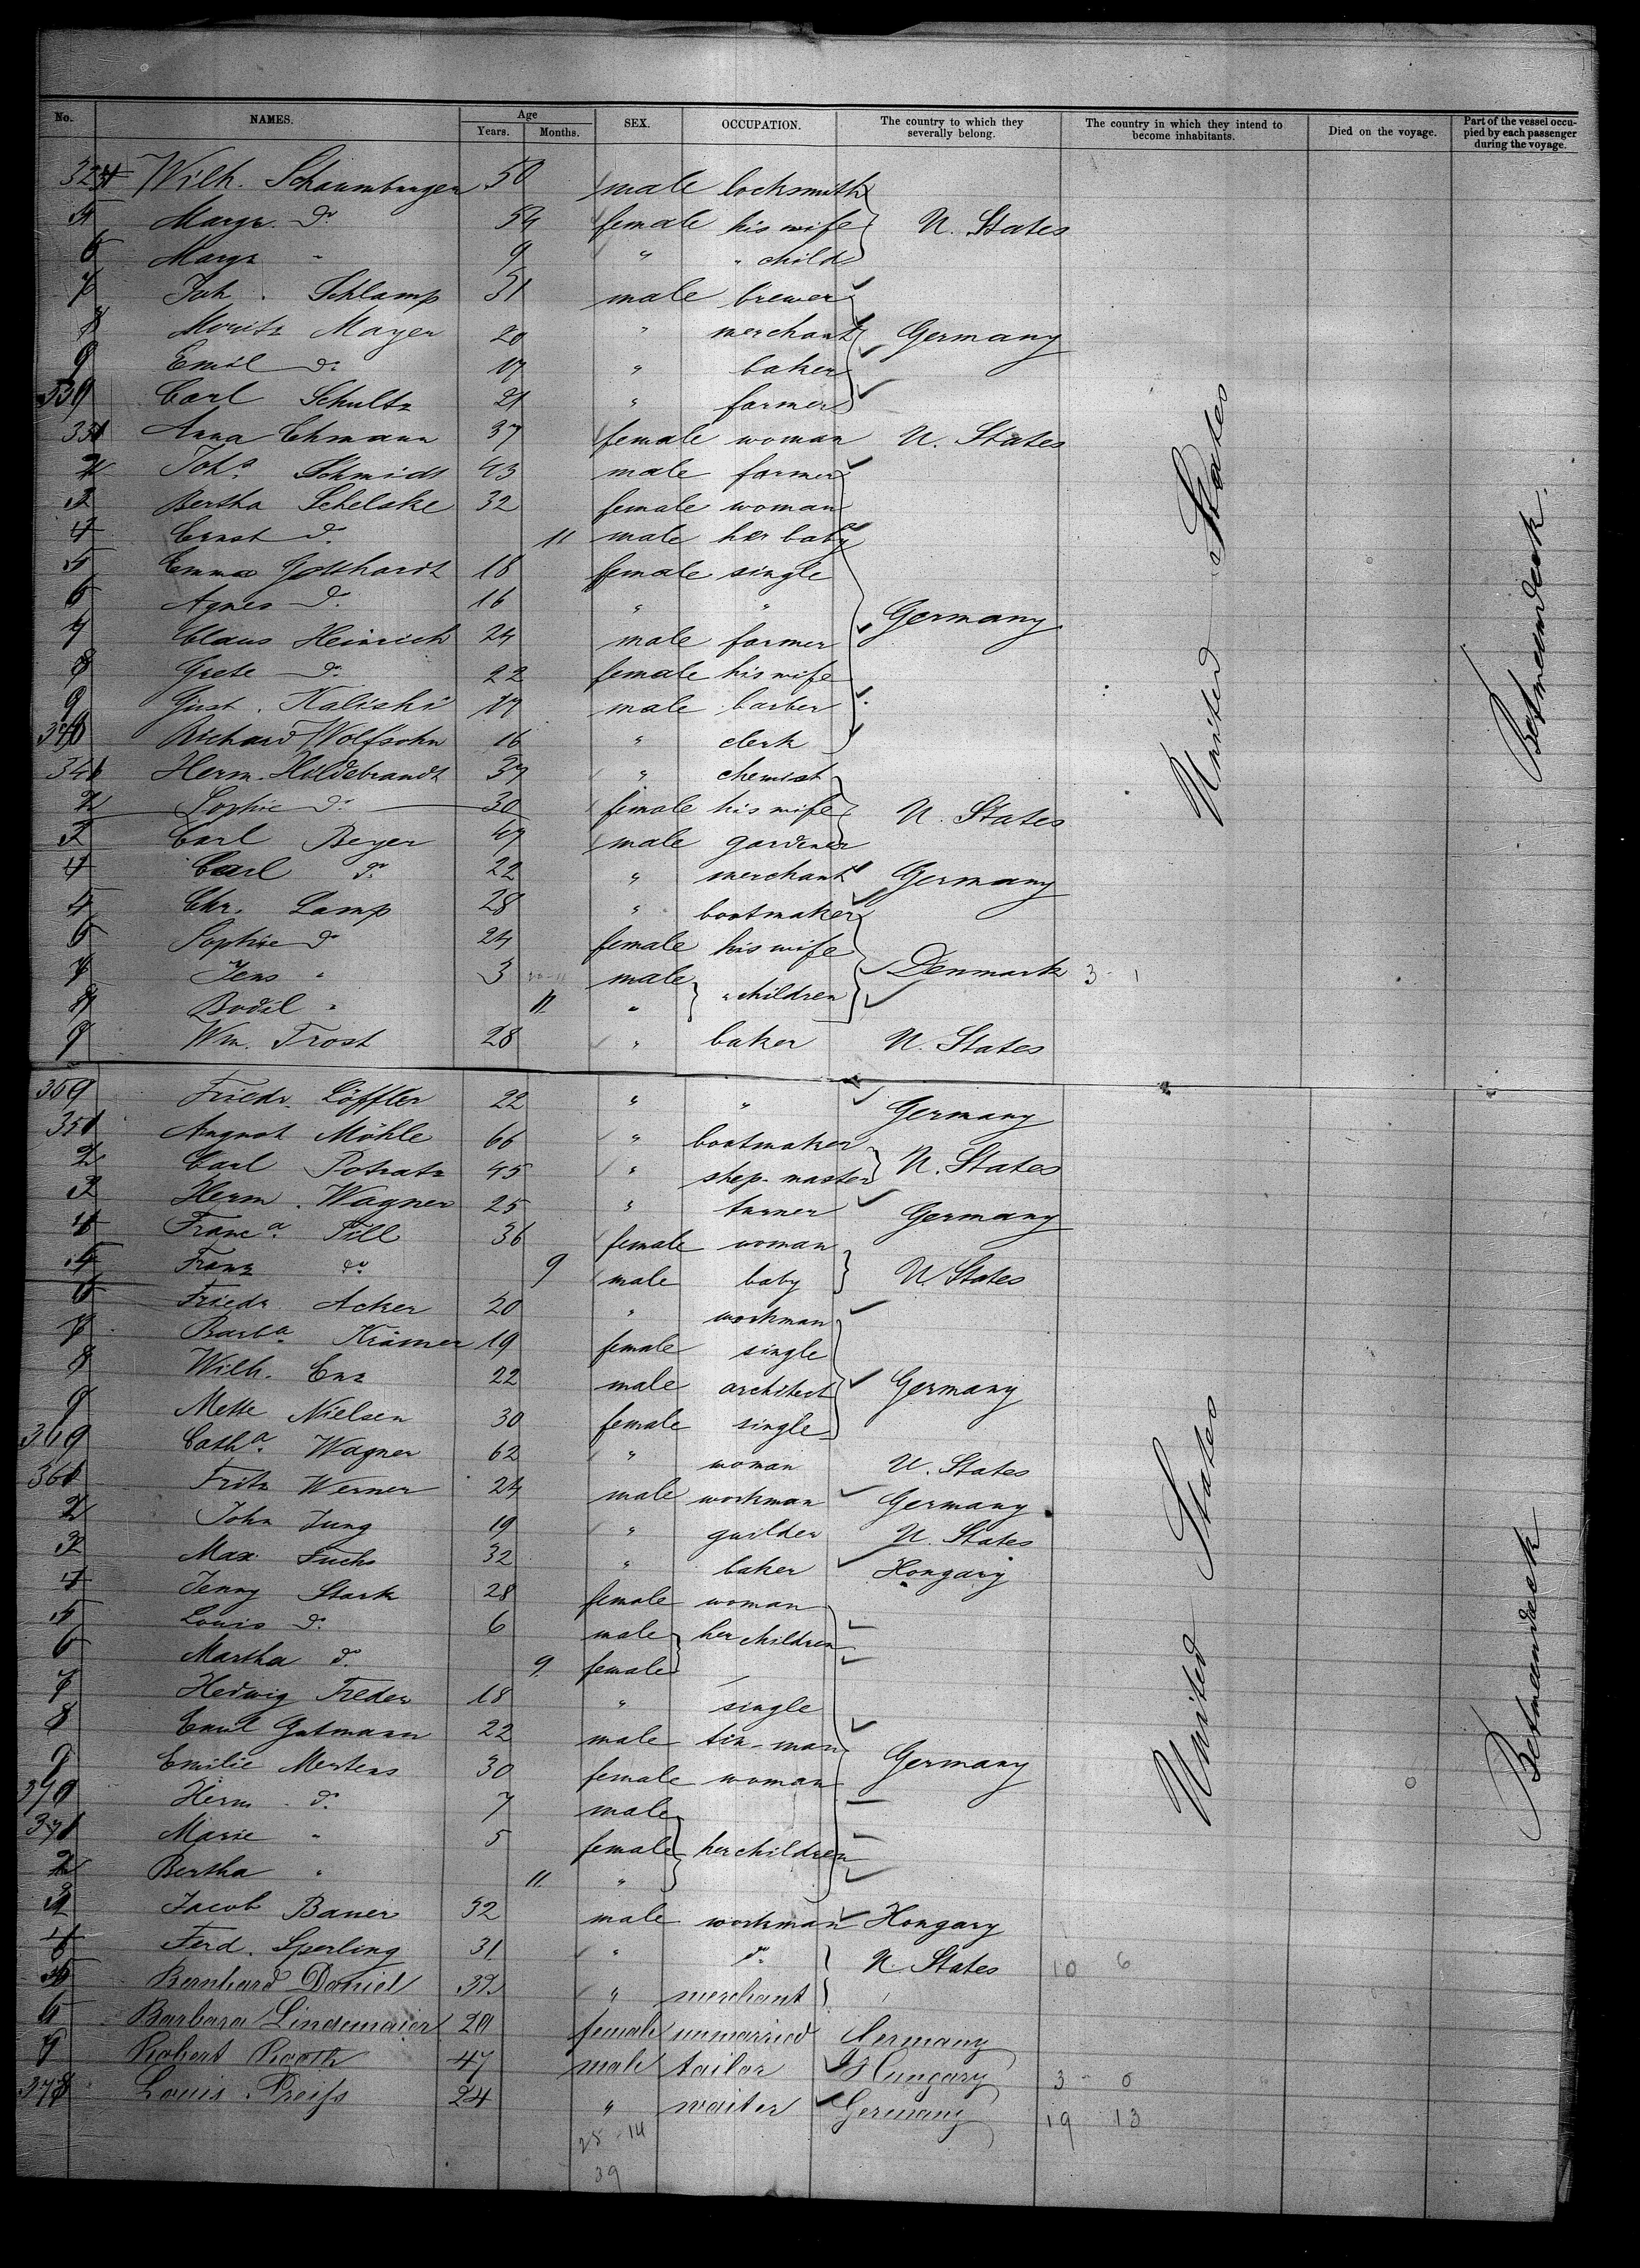 No. NAMES. Age Years. Months. SEX. OCCUPATION. The country to which they severally belong. The country in which they intend to become inhabitants. Died on the voyage. Part of the vessel occupied by each passenger during the voyage.
Wilh. Schaumburger 50 male locksmith
5 Margr. do 54 female his wife U. States
6 Margr. " 9 " " child
7 Joh. Schlamp 31 male brewer
8 Moritz Mayer 20 " merchant Germany
9 Emil do. 17 " baker
330 Carl Schultz 21 " farmer
331 Anna Ehmann 37 female woman U. States
2 Joh. Schmidt 43 male farmer
3 Bertha Schelske 32 female woman
4 Ernst do. 11 male her baby
5 Emma Gotthardt 18 female single
6 Agnes do. 16 " "
7 Claus Heinrich 24 male farmer Germany
8 Grete do. 22 female his wife
9 Gust. Kaliski 17 male barber
340 Richard Wolfsohn 16 " clerk
341 Herm. Hildebrandt 37 " chemist
2 Sophie do. 30 female his wife U. States
3 Carl Beyer 47 male gardener
4 Carl do. 22 " merchant Germany
5 Chr. Lamp 28 " bootmaker
6 Sophie do 24 female his wife
7 Jens " 3 male Denmark 3 - 1
8 Bodil " 11 " " children
9 Wm. Frost 28 " baker U. States
United States
Betweendeck.
350 Friedr. Löffler 22 " " Germany
351 August Möhle 66 " bootmaker
2 Carl Potratz 45 " shep-master U. States
3 Herm. Wagner 25 " turner Germany
4 Franca. Till 36 female woman
5 Franz do 9 male baby U States
6 Friedr. Acker 20 " workman
7 Barba. Krämer 19 female single
8 Wilh. Enz 22 male architect Germany
9 Mette Nielsen 30 female single
360 Catha. Wagner 62 " woman U. States
361 Fritz Werner 24 male workman Germany
2 John Jung 19 " guilder U. States
3 Max Fuchs 32 " baker Hongary
4 Jenny Stark 28 female woman
5 Louis do. 6 male her children
6 Martha do. 9 female
7 Hedwig Freder 18 " single
8 Emil Gutmann 22 male tin-man
9 Emilie Mertens 30 female woman Germany
370 Herm. do. 7 male
371 Marie " 5 female her children
2 Bertha " 11 "
3 Jacob Bauer 32 male workman Hongary
4 Ferd. Sperling 31 " do. U. States 10 6
5 Bernhard Daniel 32 " merchant
6 Barbara Lindemaier 20 female unmarried Germany
7 Robert 47 male tailor Hungary 3 - 0
378 Louis Preiss 24 " waiter Germany 19 13
25 - 14
39
United States
Betweendeck